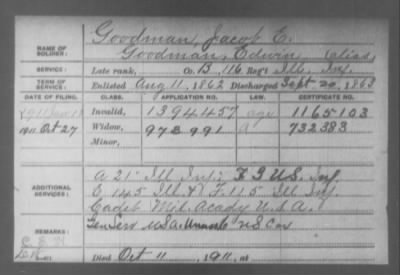 NAME OF SOLDIER: Goodman, Jacob E.
Goodman, Edwin (alias)
SERVICE: Late rank, Co. B, 116 Reg't Ill. Inf.
TERM OF SERVICE: Enlisted Aug 11, 1862 Discharged Sept 20, 1863
DATE OF FILING. CLASS. APPLICATION NO. LAW. CERTIFICATE NO.
Invalid, 1394457 age 1165103
1911 Oct 27 Widow, 973991 A 732383
Minor,
ADDITIONAL SERVICES: A 21" Ill Inf; F 3 U.S. Inf
E 145 Ill & F. 115 Ill Inf
Cadet Mil. Acady U.S.A.
REMARKS: Gen Serv USA. US Cav
Died Oct 11, 1911, at